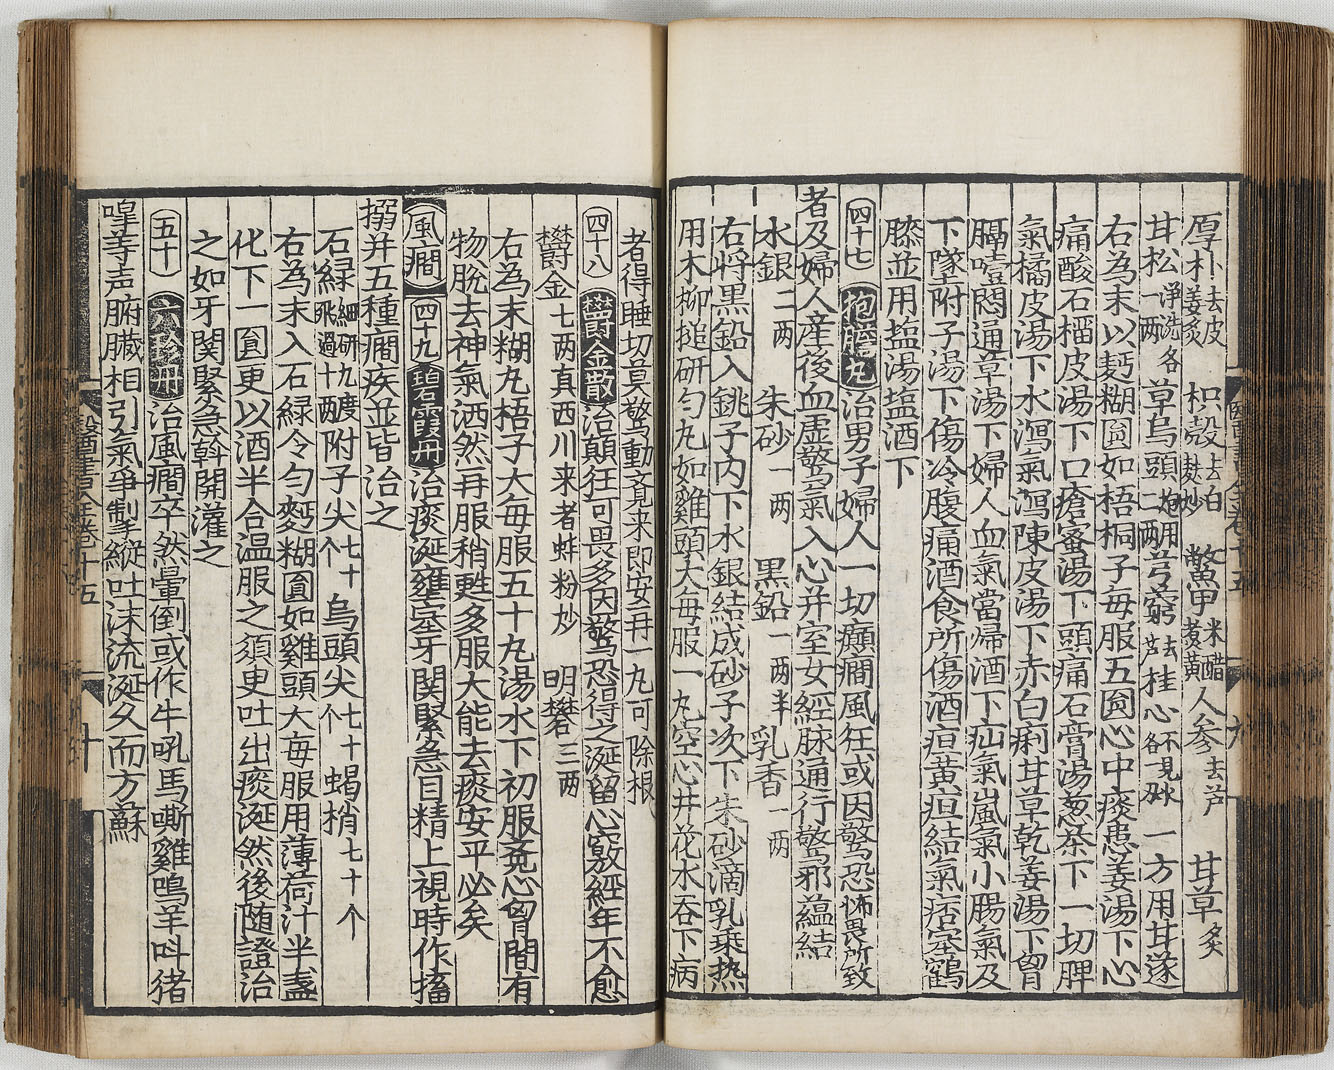 厚朴去皮姜炙 枳殻去白麸炒 鱉甲米醋煮黄 人参去芦 甘草炙
甘松净洗一两各 草烏頭炮用二两 芎藭去芦 桂心不見火各 一方用甘遂
右為末以麪糊圓如梧桐子毎服五圓心中痰患姜湯下心
痛酸石榴皮湯下口瘡蜜湯下頭痛石膏湯葱茶下一切脾
氣橘皮湯下水瀉氣瀉陳皮湯下赤白痢甘草乾姜湯下胷
膈噎悶通草湯下婦人血氣當帰酒下疝氣嵐氣小腸氣及
下墜附子湯下傷冷腹痛酒食所傷酒疸黄疸結氣痞塞鶴
膝並用塩湯塩酒下
四十七 抱膽丸 治男子婦人一切癲癇風狂或因驚恐怖畏所致
者及婦人産後血虚驚氣入心并室女經脉通行驚邪蘊結
水銀二两 朱砂一两 黒鉛一两半 乳香一两
右将黒鉛入銚子内下水銀結成砂子次下朱砂滴乳乗热
用木柳搥研匀丸如雞頭大毎服一丸空心井花水吞下病
者得睡切莫驚動覚来即安再一丸可除根
四十八 欝金散 治顛狂可畏多因驚恐得之涎留心竅經年不愈
欝金七两真西川来者蚌粉炒 明礬三两
右為末糊丸梧子大毎服五十丸湯水下初服覚心胷間有
物脱去神氣洒然再服稍甦多服大能去痰安平必矣
風癇 四十九 碧霞丹 治痰涎壅塞牙関緊急目精上視時作搐
搦并五種癇疾並皆治之
石緑細研九度飛過十两 附子尖七十个 烏頭尖七十个 蝎梢七十个
右為末入石緑令匀麪糊圎如雞頭大毎服用薄荷汁半盞
化下一圓更以酒半合温服之須更吐出痰涎然後随證治
之如牙関緊急斡開灌之
五十 六珍丹 治風癇卒然暈倒或作牛吼馬嘶雞鳴羊呌猪
嘷等声腑臓相引氣争掣縦吐沫流涎久而方蘇